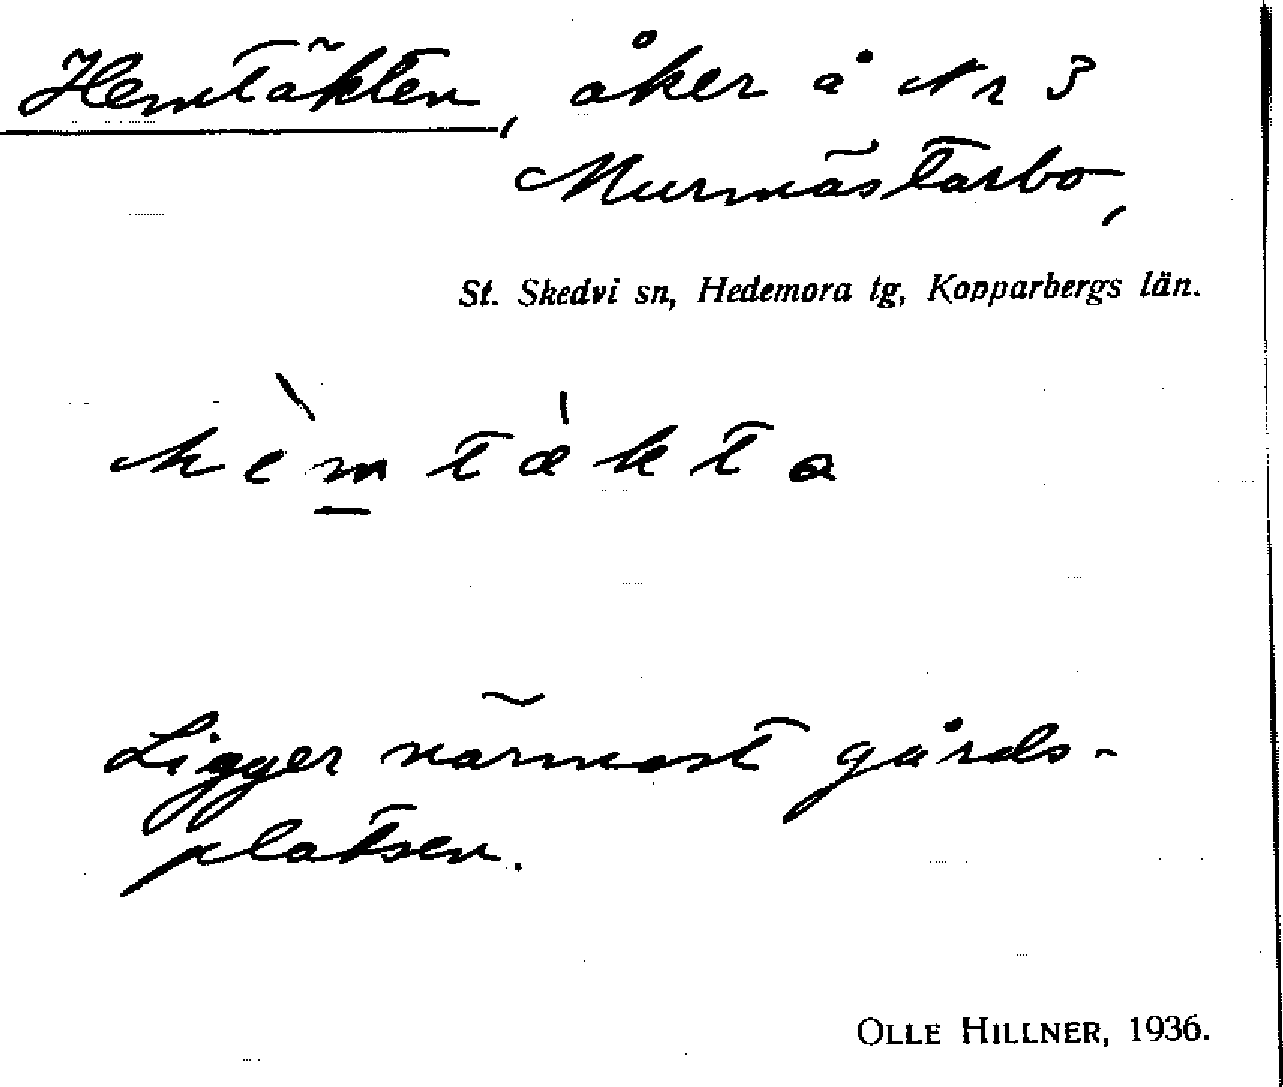 Hemtäkten, åker å Nr 3
Murmästarbo,
St. Skedvi sn, Hedemora tg, Kopparbergs län.
hèm̲tækta
Ligger närmast gårds-
platsen.
OLLE HILLNER, 1936.